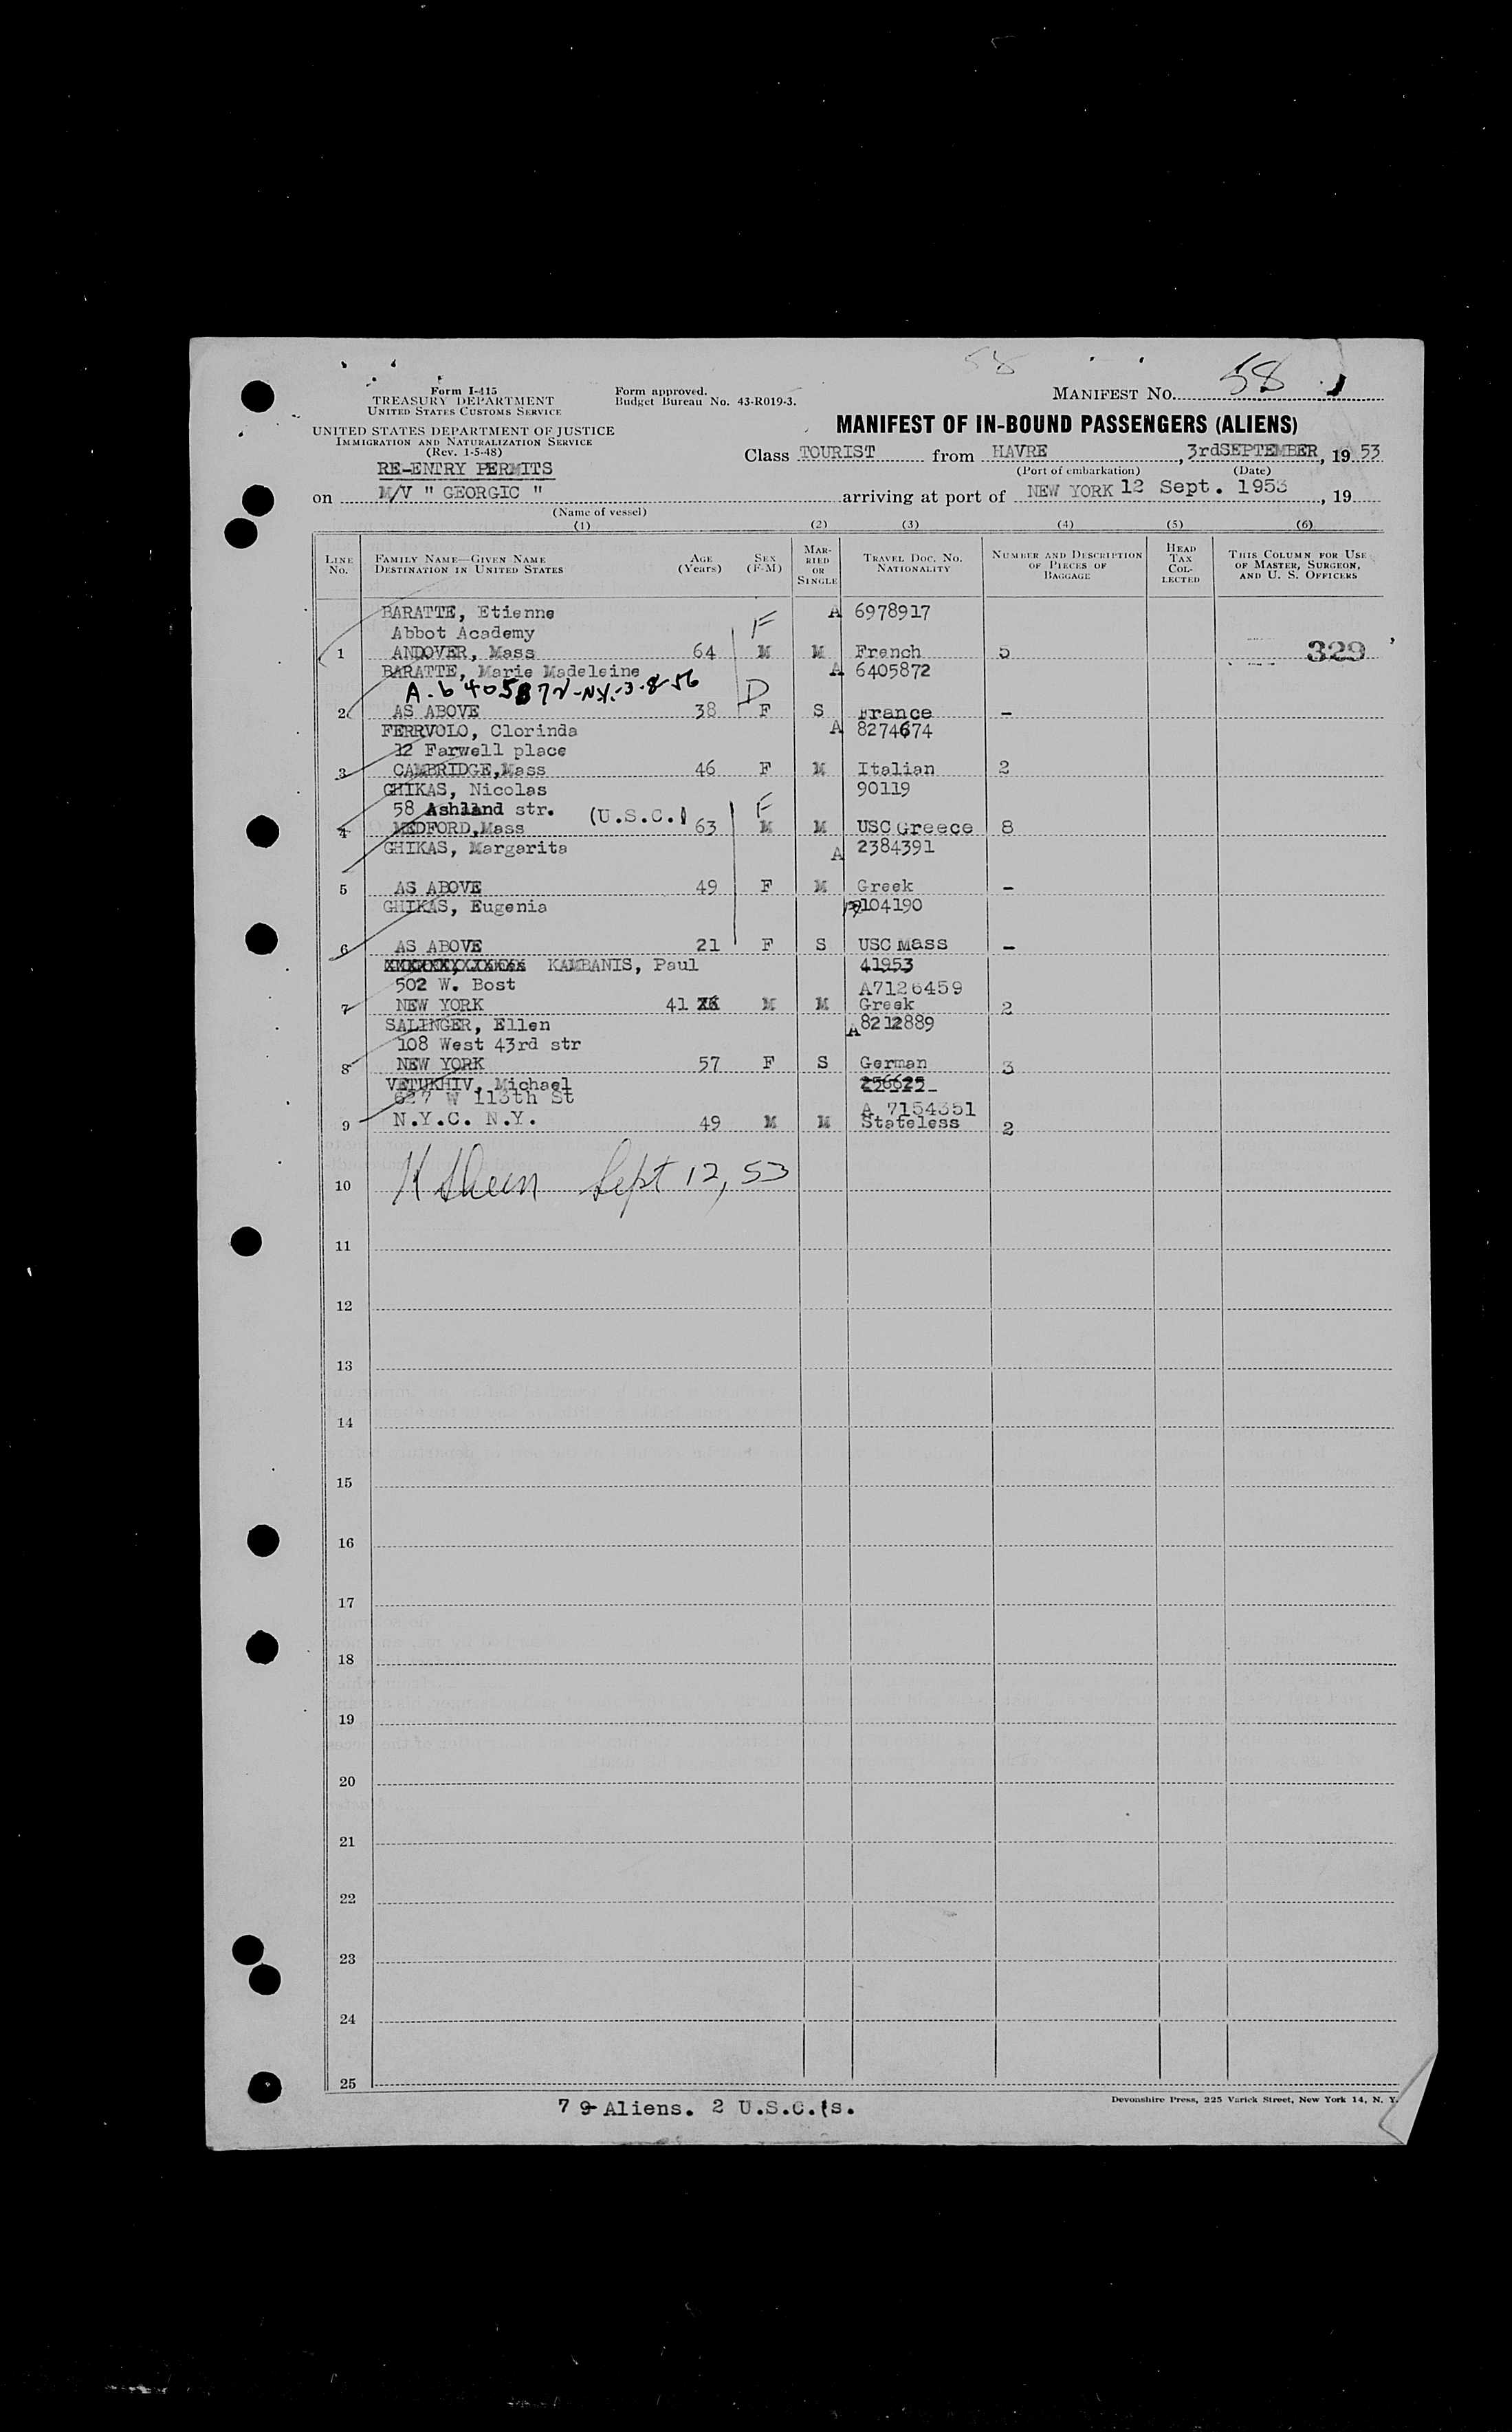 58
Form I-415
TREASURY DEPARTMENT
UNITED STATES CUSTOMS SERVICE
Form approved.
Budget Bureau No. 43-R019-3.
MANIFEST No. 58
UNITED STATES DEPARTMENT OF JUSTICE
IMMIGRATION AND NATURALIZATION SERVICE
(Rev. 1-5-48)
MANIFEST OF IN-BOUND PASSENGERS (ALIENS)
Class TOURIST from HAVRE, 3rdSEPTEMBER, 19 53
(Port of embarkation) (Date)
RE-ENTRY PERMITS
on M/V " GEORGIC " arriving at port of NEW YORK 12 Sept. 1953, 19
(Name of vessel)
(1) (2) (3) (4) (5) (6)
LINE No. FAMILY NAME—GIVEN NAME DESTINATION IN UNITED STATES AGE (Years) SEX (F-M) MARRIED OR SINGLE TRAVEL DOC. NO. NATIONALITY NUMBER AND DESCRIPTION OF PIECES OF BAGGAGE HEAD TAX COLLECTED THIS COLUMN FOR USE OF MASTER, SURGEON, AND U. S. OFFICERS
BARATTE, Etienne A 6978917
Abbot Academy F
1 ANDOVER, Mass 64 M M Franch 5 329
BARATTE, Marie Madeleine A 6405872
A-6405872-N.Y.-3-8-56 D
2 AS ABOVE 38 F S France –
FERRVOLO, Clorinda A 8274674
12 Farwell place
3 CAMBRIDGE,Mass 46 F M Italian 2
GHIKAS, Nicolas 90119
58 Ashland str. (U.S.C.) F
4 MEDFORD,Mass 63 M M USC Greece 8
GHIKAS, Margarita A 2384391
5 AS ABOVE 49 F M Greek –
GHIKAS, Eugenia 104190
6 AS ABOVE 21 F S USC Mass –
KAMBANIS, Paul 41953
502 W. Bost A7126459
7 NEW YORK 41 M M Greek 2
SALINGER, Ellen A 8212889
108 West 43rd str
8 NEW YORK 57 F S German 3
VETUKHIV, Michael 256625
627 W 113th St A 7154351
9 N.Y.C. N.Y. 49 M M Stateless 2
10 Sept 12, 53
11
12
13
14
15
16
17
18
19
20
21
22
23
24
25
7 9 Aliens. 2 U.S.C.'s.
Devonshire Press, 225 Varick Street, New York 14, N. Y.